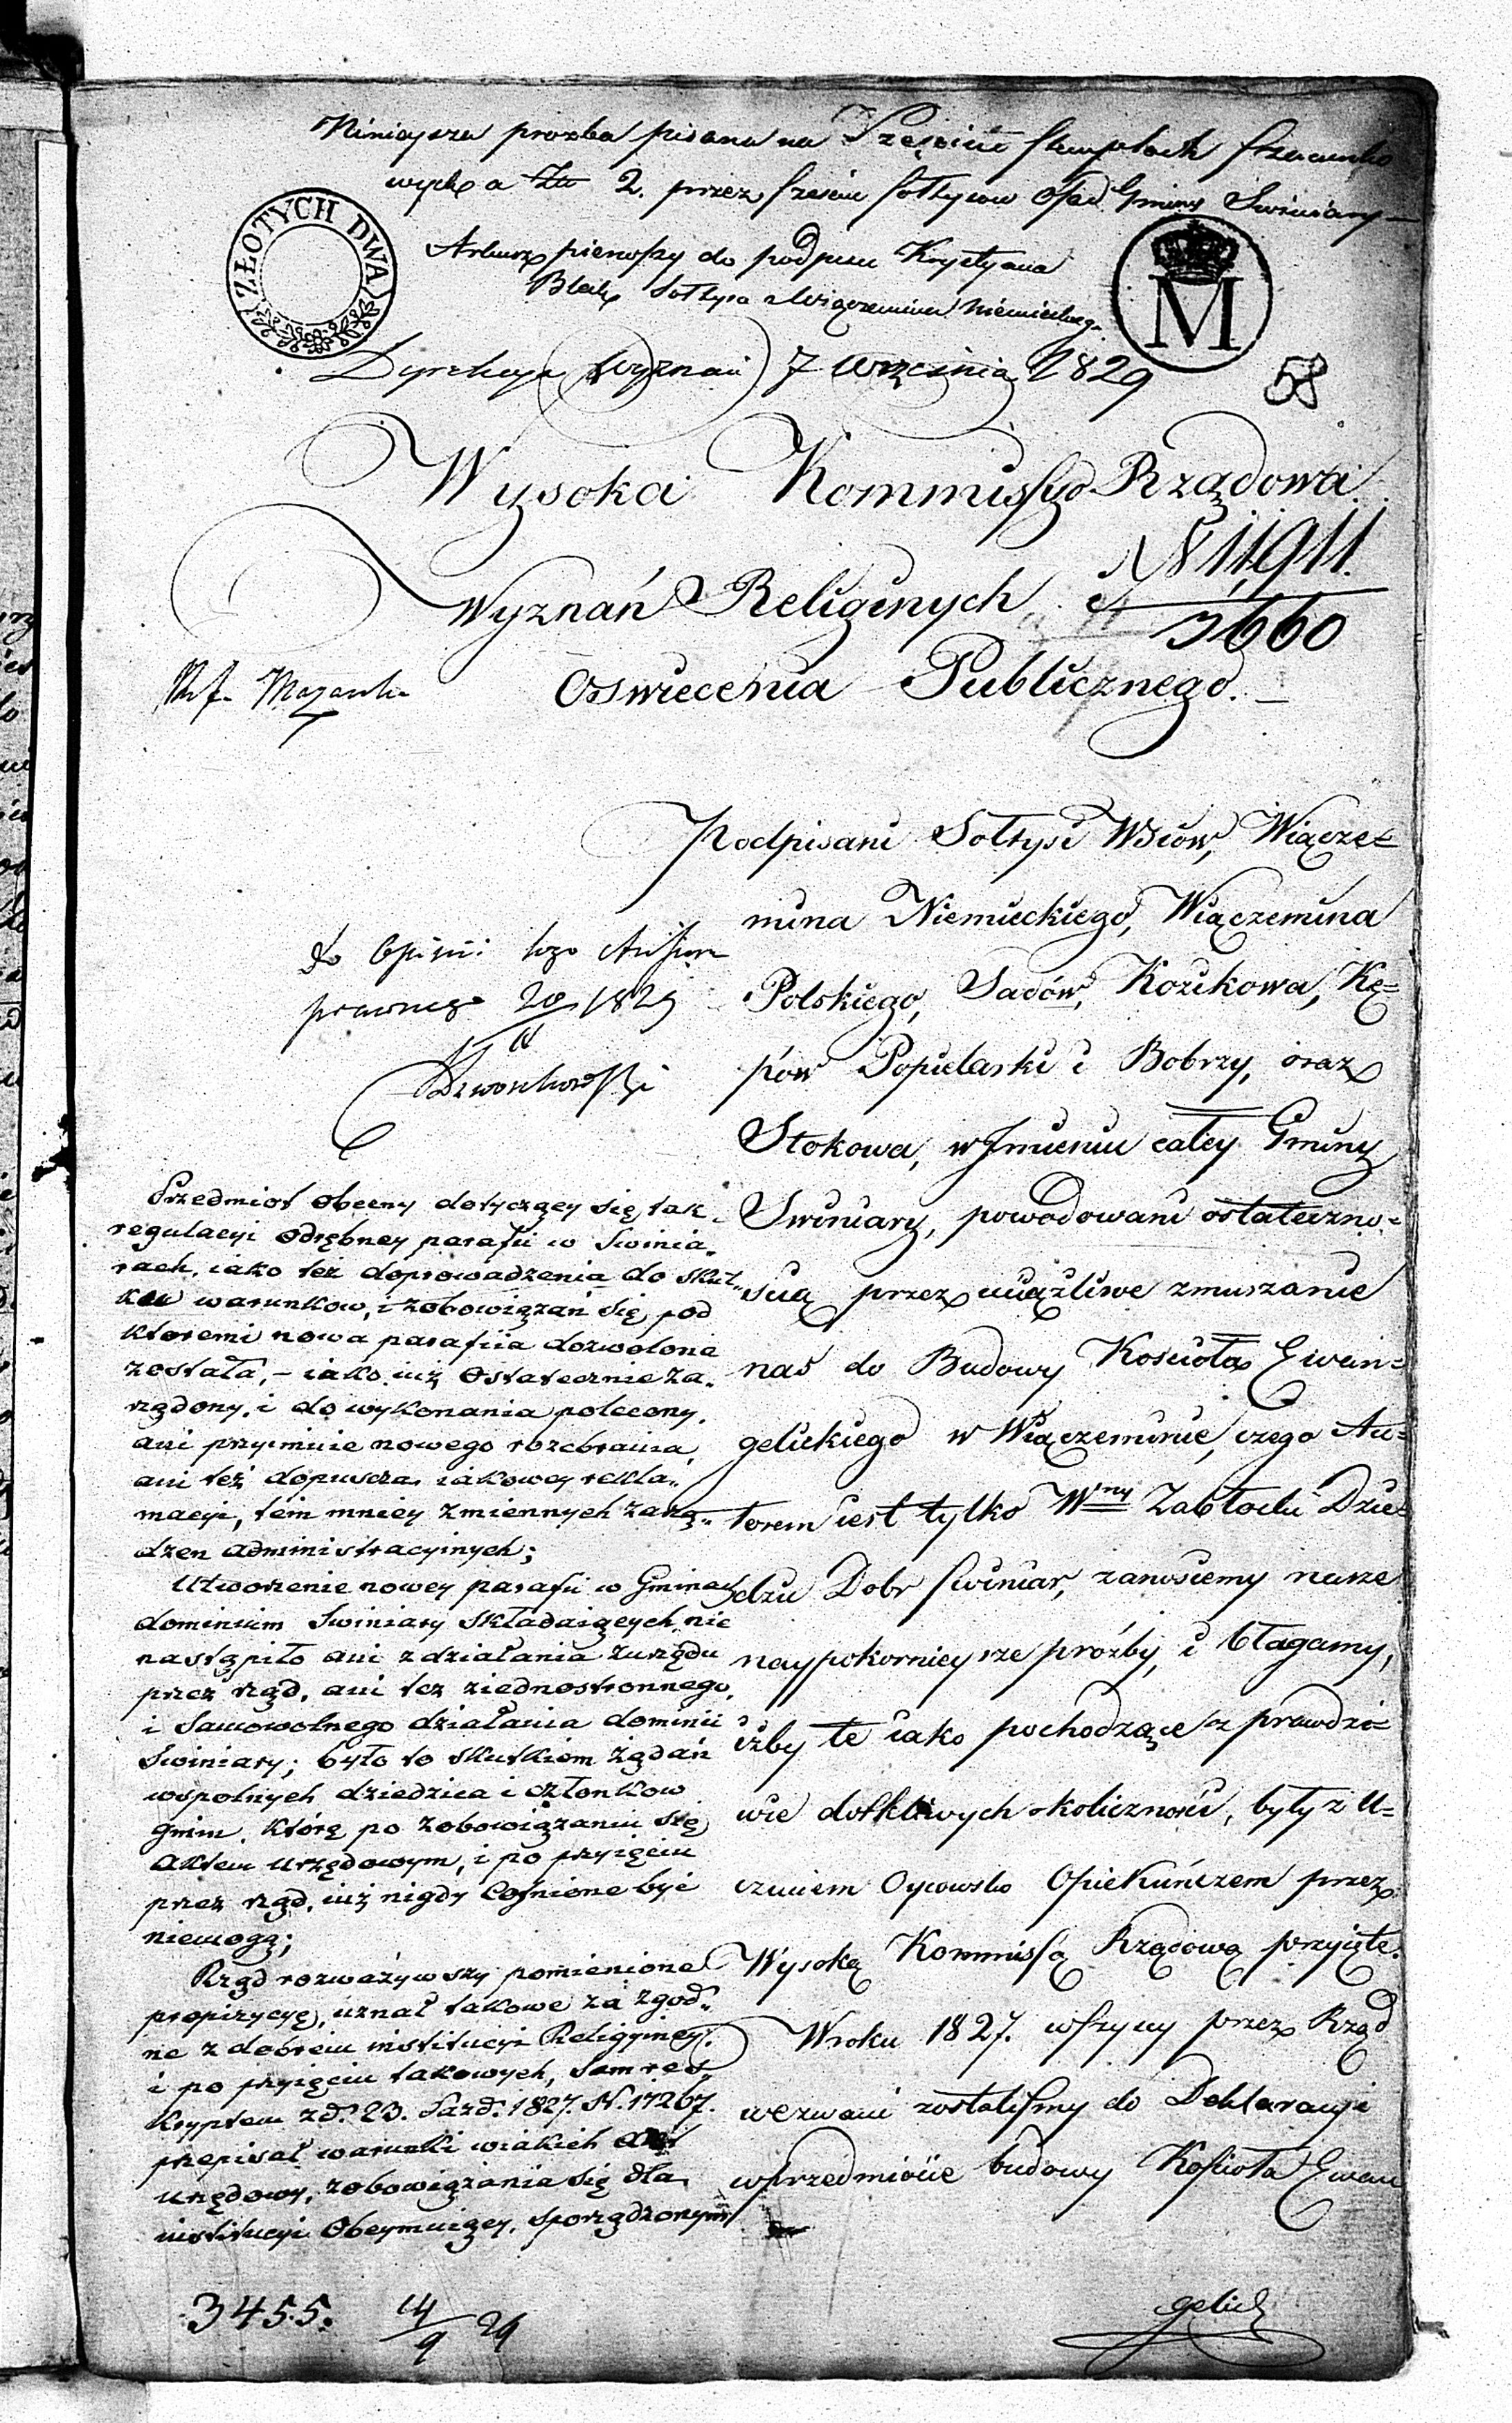 Ninieysza prozba pisana na Sześciu stemplach szacunko
wych a Złt 2. przez sześciu sołtysów Osad Gminy Swiniary
Arkusz pierwszy do podpisu Krystyana
sołtysa z Wiączemina Niemieckieg.
ZŁOTYCH DWA
M
Dyrekcya Wyznań 7 Września 1829
58
Wysoka Kommissyo Rządowa
Wyznań Religinych
N 11,911.
3660
Oswiecenia Publicznego.
Podpisani Sołtysi Wsiów, Wiącze=
mina Niemieckiego, Wiączemina
Polskiego, Sadów, Kozikowa, Kę=
pów Popielarski i Bobrzy, oraz
Stokowa, w Jmieniu całey Gminy
Swiniary, powodowani ostateczno=
scią przez uciążliwe zmuszanie
nas do Budowy Koscioła Ewan=
gelickiego w Wiączeminie, czego Au=
torem iest tylko Wny Zabłocki Dzie=
dzic Dobr swiniar, zanosiemy nasze
naypokornieysze prożby, i błagamy,
iżby te iako pochodzące z prawdzi=
wie dotkliwych okoliczności, były z U=
czuciem Oycowsko Opiekuńczem przez
Wysoką Kommissą Rządową przyięte.
W roku 1827. wszyscy przez Rząd
wezwani zostaliśmy do Deklaracyi
w przedmiocie budowy Kościoła Ewan
gelick
do Opinii
prawnego 20/9 1829
Przedmiot obecny dotyczący się tak
regulacyi odrębney parafii w Swinia„
rach, iako też doprowadzenia do skut„
ku warunkow, i zobowiązań się, pod
ktoremi nowa parafiia dozwolona
została, – iako iuż ostatecznie za„
rządony, i do wykonania polecony,
ani przyimuie nowego rozebrania,
ani też dopuszcza iakowey rekla„
macyi, tem mniey zmiennych zarzą„
dzen administracyinych;
Utworzenie nowey parafii w Gminach
dominium Swiniary składaiących, nie
nastąpiło ani z działania zurzędu
przez rząd, ani tez ziednostronnego,
i samowolnego działania dominii
Swiniary; było to skutkiem żądań
wspolnych dziedzica i członkow
gmin, którę po zobowiązaniu się
aktem urzędowym, i po przyięciu
przez rząd, iuż nigdy cofnione być
niemogą;
Rząd rozważywszy pomienione
propizycyę, uznał takowe za zgod„
ne z dobrem institucyi Religyiney,
i po przyięciu takowych, sam res„
kryptem z d. 23. Pazd. 1827. N. 17267.
przepisał warunki w iakich akt
urzędowy, zobowiązania się dla
institucyi obeymuiący, sporządzonym
3455. 14/9 29